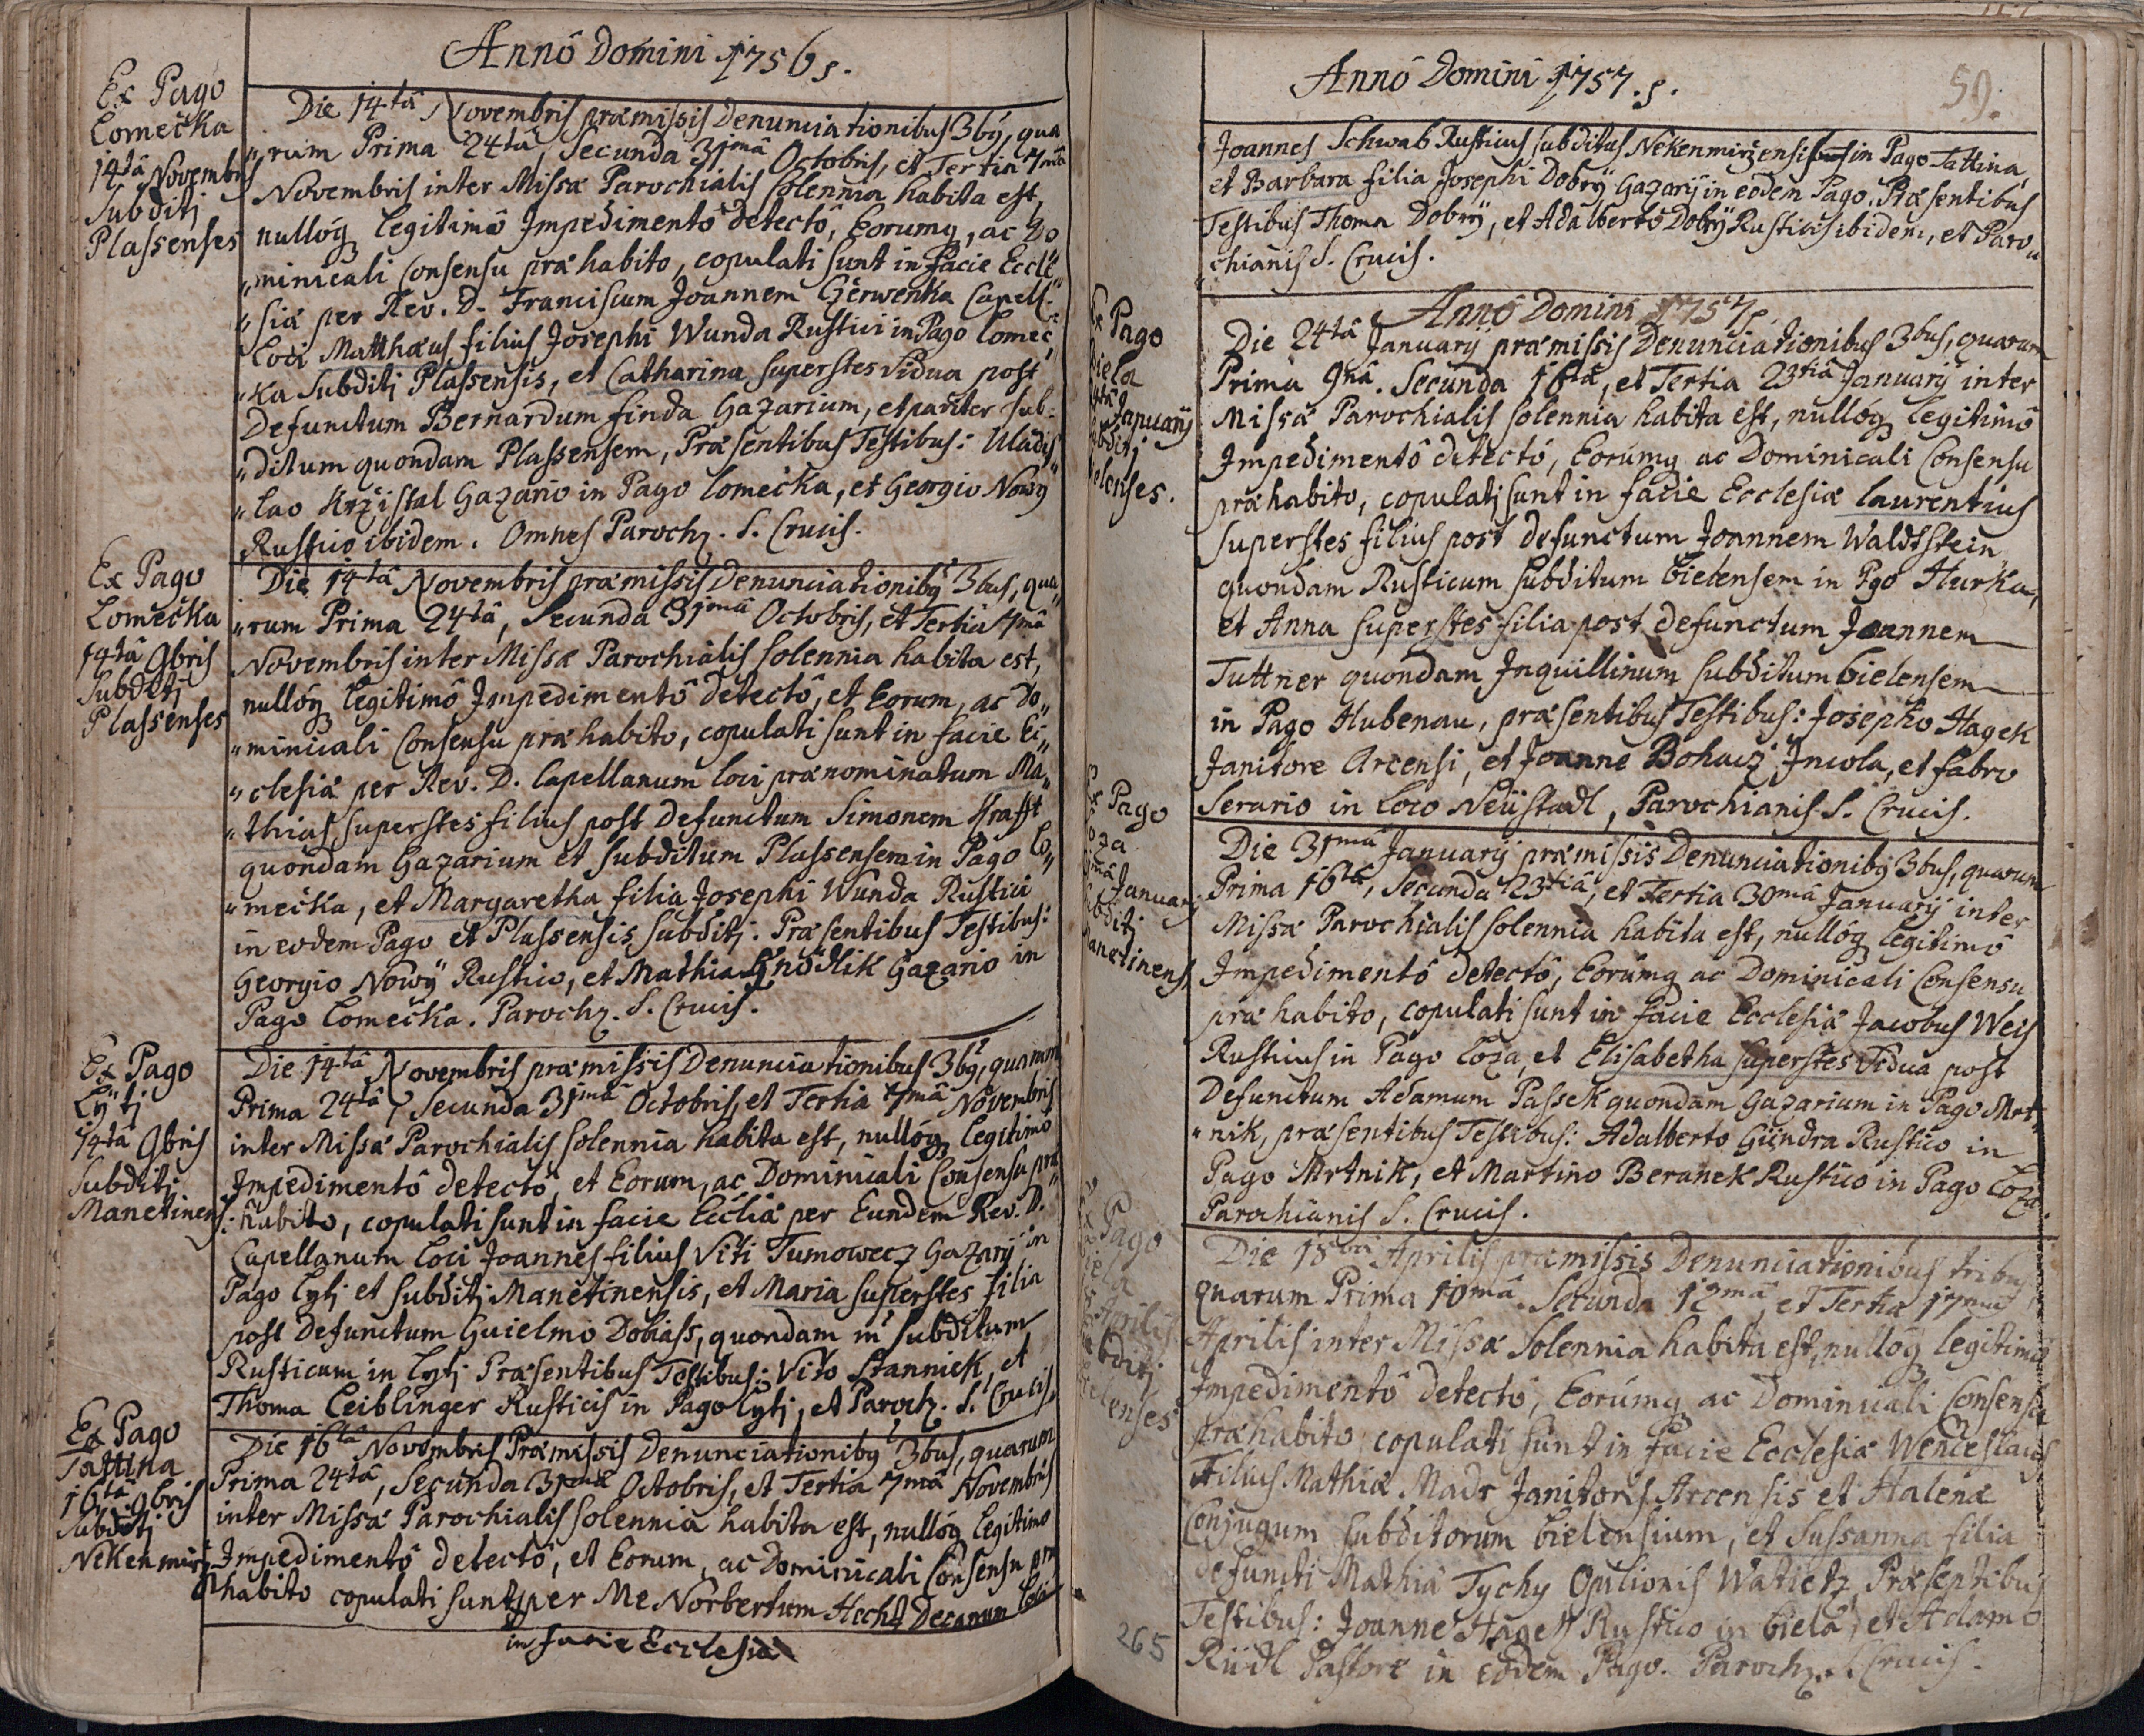 Annô Domini 1756 s.
Ex Pago
Lomečka
14tâ Novembris
Subditj
Plassenses
Die 14tâ Novembris præmissis Denunciationibus 3bq, qua
„rum Prima 24tâ, Secunda 31mâ Octobris, et Tertia 7mâ
Novembris inter Missæ Parochialis solennia habita est,
nullóq legitimô Impedimentô detectô, Eorumq, ac Do
„minicali Consensu præhabito, copulati sunt in facie Eccle
„siæ per Rev. D. Franciscum Joannem Czerwenka Capell:
Loci Matthæus filius Josephi Wunda Rustici in Pago Lomeč
„ka Subditj Plassensis, et Catharina superstes Vidua post
Defunctum Bernardum finda Gazarium, et pariter sub-
„ditum quondam Plassensem, Præsentibus Testibus: Uladis
„lao Krzistal Gazario in Pago Lomečka, et Georgio Nowÿ
Rustico ibidem. Omnes Parochz. S. Crucis.
Ex Pago
Lomečka
14tâ 9bris
Subditj
Plassenses
Die 14tâ Novembris præmissis Denunciationibq 3bus, qua„
„rum Prima 24tâ, Secunda 31mâ Octobris, et Tertia 7mâ
Novembris inter Missæ Parochialis solennia habita est,
nullóq legitimô Impedimentô detectô, et Eorum, ac Do„
„minicali Consensu præhabito, copulati sunt in facie Ec„
„clesiæ per Rev. D. Capellanum loci prænominatum Ma„
„thias superstes filius post defunctum Simonem Krafft
quondam Gazarium et subditum Plassensem in Pago Lo„
„mečka, et Margaretha filia Josephi Wunda Rustici
in eodem Pago et Plassensis subditj. Præsentibus Testibus:
Georgio Nowÿ Rustico, et Mathia Hnodlik Gazario in
Pago Lomečka. Parochz. S. Crucis.
Ex Pago
Lÿtj
14tâ 9bris
Subditj
Manetinens:
Die 14tâ Novembris præmissis Denunciationibus 3bq, quarum
Prima 24tâ, Secunda 31mâ Octobris, et Tertia 7mâ Novembris
inter Missæ Parochialis solennia habita est, nullóq legitimo
Impedimentô detectô, et Eorum, ac Dominicali Consensu præ
habito, copulati sunt in facie Eccliæ per Eundem Rev. D.
Capellanum Loci Joannes filius Viti Tumowecz Gazarÿ in
Pago Lytj et subditj Manetinensis, et Maria superstes filia
post Defunctum Guielmo Dobiass, quondam in subditum
Rusticum in Lytj Præsentibus Testibus: Vito Stanniek, et
Thoma Leiblinger Rusticis in Pago Lytj, et Parochz. S. Crucis,
Ex Pago
Tattina
16tâ 9bris
Subditj
Nekenmirz
Die 16tâ Novembris Præmissis Denunciationibq 3bus, quarum
Prima 24tâ, Secunda 31mâ Octobris, et Tertia 7mâ Novembris
inter Missæ Parochialis solennia habita est, nullóq legitimo
Impedimentô detectô, et Eorum, ac Dominicali Consensu præ
habito copulati sunt per Me Norbertum Hecht Decanum Loci
in facie Ecclesiæ
Annô Domini 1757. s.
59.
Joannes Schwab Rusticus subditus Nekenmirzensis in Pago Tattina,
et Barbara filia Josephi Dobrÿ Gazarÿ in eodem Pago. Præsentibus
Testibus Thoma Dobrÿ, et Adalberto Dobrÿ Rusticis ibidem, et Paro„
„chianis S. Crucis.
Annô Domini 1757
Ex Pago
Biela
Januarÿ
Die 24tâ Januarÿ præmissis Denunciationibus 3bus, quarum
Prima 9nâ. Secunda 16tâ, et Tertia 23tiâ Januarÿ inter
Missæ Parochialis solennia habita est, nullóq legitimô
Impedimentô detectô, Eorumq ac Dominicali Consensu
præhabito, copulatj sunt in facie Ecclesiæ Laurentius
superstes filius post defunctum Joannem Waldtstein
quondam Rusticum subditum Bielensem in Pgo Hurka,
et Anna superstes filia post defunctum Joannem
Tuttner quondam Inquillinum subditum Bielensem
in Pago Hubenau, præsentibus Testibus: Josepho Hagek
Janitore Arcensi, et Joanne Bohacz Incola, et fabro
Serario in Loco Neüstadl, Parochianis S. Crucis.
Ex Pago
Januarÿ
Manetinens.
Die 31mâ Januarÿ præmissis Denunciationibq 3bus, quarum
Prima 16tâ, Secunda 23tiâ, et Tertia 30mâ Januarÿ inter
Missæ Parochialis solennia habita est, nullóq legitimô
Impedimentô detectô, Eorumq ac Dominicali Consensu
præ habito, copulati sunt in facie Ecclesiæ Jacobus Weis
Rusticus in Pago Loza, et Elisabetha superstes Vidua post
Defunctum Adamum Passek quondam Gazarium in Pago Mrt„
„nik, præsentibus Testibus: Adalberto Gündra Rustico in
Pago Mrtnik, et Martino Beranek Rustico in Pago Loza.
Parochianis S. Crucis.
Pago
Aprilis
Die 18 Aprilis præmissis Denunciationibus tribus
quarum Prima 10mâ. Secunda 12mâ, et Tertia 17mâ
Aprilis inter Missæ Solennia habita est, nullóq legitimô
Impedimentô detectô, Eorumq ac Dominicali Consensu
præhabito, copulati sunt in facie Ecclesiæ Wenceslaus
Filius Mathiæ Madr Janitoris Arcensis et Halenæ
Conjugum subditorum Bielensium, et Sussanna filia
defuncti Mathiæ Tychy Opilionis Præsentibus
Testibus: Joanne Hagek Rustico in Biela, et Adamo
Riedl Pastore in eodem Pago. Parochz. S. Crucis.
265